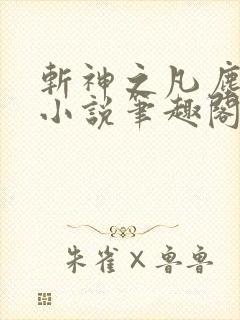 斬神之凡塵
小說筆趣閣
朱雀×魯魯